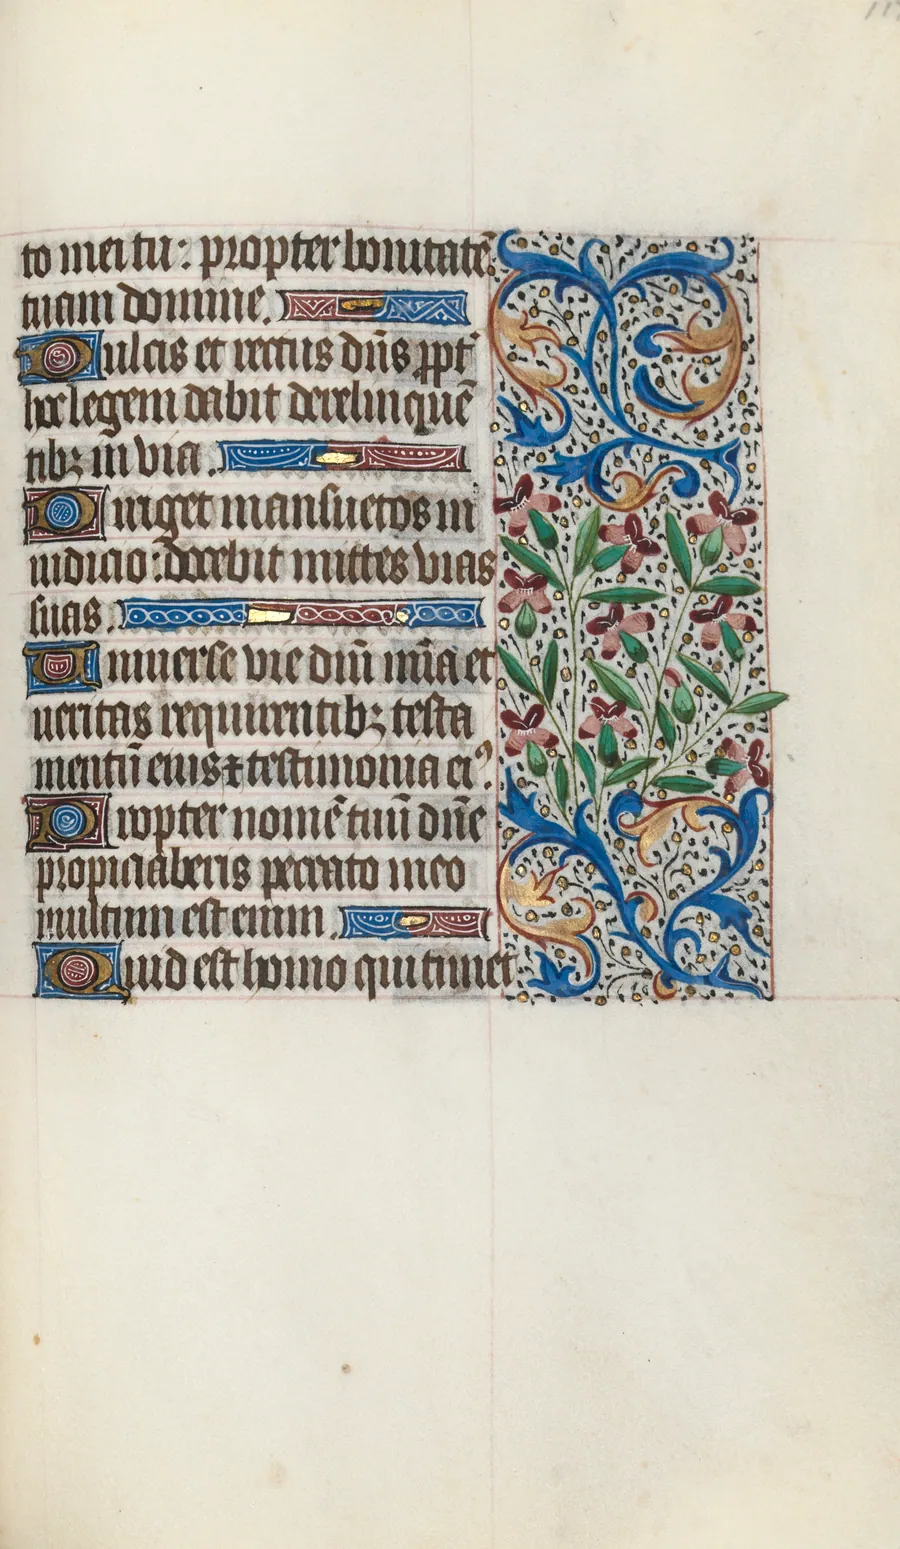 to mei tu: propter bonitatē
tuam domine.
Dulcis et rectus dn̄s ꝓpt̄
hoc legem dabit derelinquē
tibꝫ in via.
Diriget mansuetos in
iudicio: docebit mittes vias
suas.
Uniuerse vie dn̄i mīa et
ueritas requirentibꝫ testa
mentū eius ⁊ testimonia ei⁹
Propter nomē tuū dn̄e
propiciaberis peccato meo
multum est enim
Quid est homo qui timet